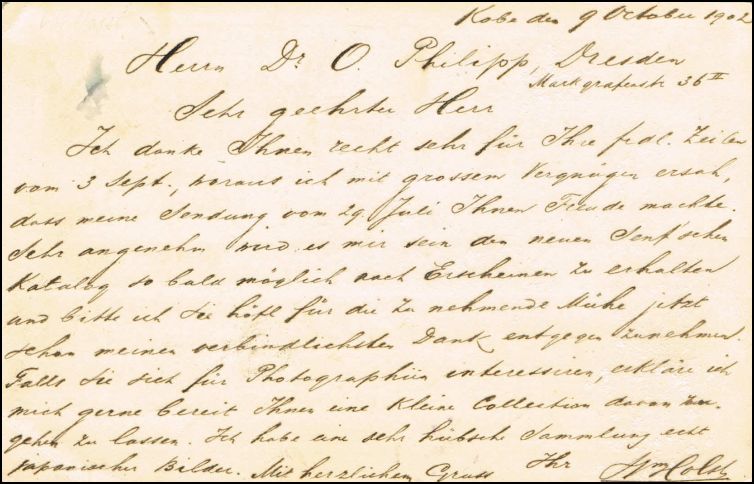 Kobe den 9 October 1902
Herrn Dr. O. Philipp, Dresden
Markgrafenstr 36 II
Sehr geehrter Herr
Ich danke Ihnen recht sehr für Ihre frdl. Zeilen
vom 3 Sept., woraus ich mit grossem Vergnügen ersah,
dass meine Sendung vom 29. Juli Ihnen Freude machte.
Sehr angenehm wird es mir sein den neuen Senf'schen
Katalog so bald möglich nach Erscheinen zu erhalten
und bitte ich Sie höfl für die zu nehmende Mühe jetzt
schon meinen verbindlichsten Dank entgegen zunehmen.
Falls Sie sich für Photographiin interessiren, erkläre ich
mich gerne bereit Ihnen eine kleine Collection davon zu-
gehen zu lassen. Ich habe eine sehr hübsche Sammlung echt
japanischer Bilder. Mit herzlichem Gruss Ihr Wm Holst